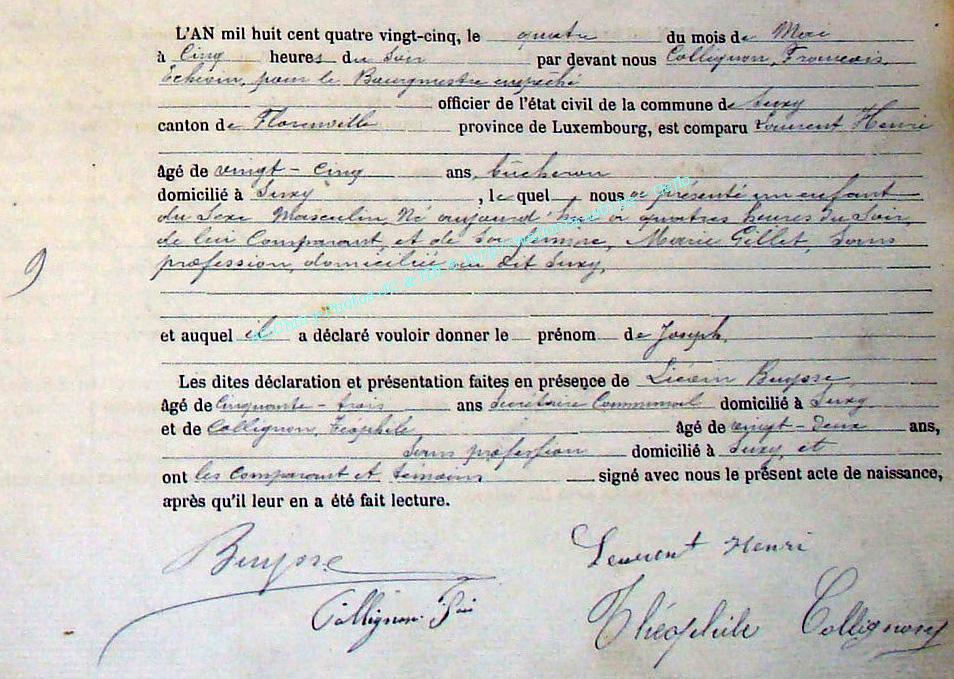 L'AN mil huit cent quatre vingt-cinq, le quatre du mois de Mai
à Cinq heures du Soir par devant nous Collignon, François,
Echevin, pour le Bourgmestre empêché
officier de l'état civil de la commune de Suxy
canton de Florenville province de Luxembourg, est comparu Laurent Henri
âgé de vingt-cinq ans, bûcheron
domicilié à Suxy, le quel nous a présenté un enfant
du Sexe Masculin Né aujourd'hui à quatres heures du Soir,
de lui Comparant, et de Sa femme, Marie Gillet, Sans
profession, domiciliée au dit Suxy,
9
et auquel il a déclaré vouloir donner le prénom de Joseph.
Les dites déclaration et présentation faites en présence de Buysse,
âgé de Cinquante-trois ans Secrétaire Communal domicilié à Suxy
et de Collignon, Téophile âgé de vingt-deux ans,
Sans profession domicilié à Suxy, et
ont les comparant et témoins signé avec nous le présent acte de naissance,
après qu'il leur en a été fait lecture.
Buysse Laurent Henri
Collignon. Théophile Collignon